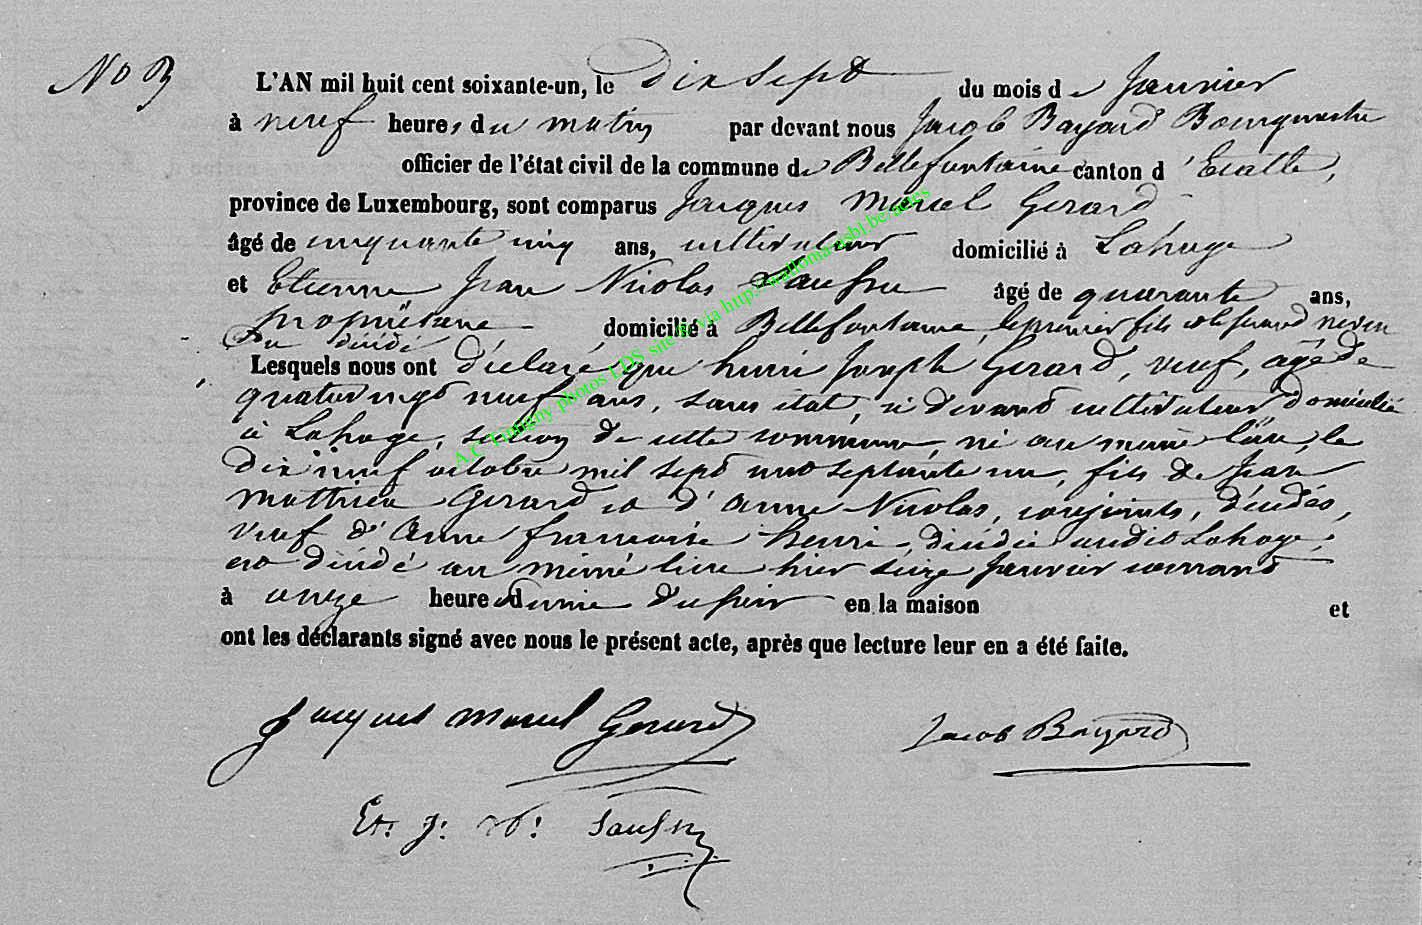 No 3
L'AN mil huit cent soixante-un, le dix sept du mois de Janvier
à neuf heures du matin par devant nous Jacob Bayard Bourgmestre
officier de l'état civil de la commune de Bellefontaine canton d'Etalle,
province de Luxembourg, sont comparus Jacques Marcel Gerard
âgé de cinquante cinq ans, cultivateur domicilié à Lahage
et Etienne Jean Nicolas Saussu âgé de quarante ans,
propriétaire domicilié à Bellefontaine, le premier fils et le second neveu
Du décédé
Lesquels nous ont déclaré que henri Joseph Gerard, veuf, âgé de
quatrevingt neuf ans, sans état, ci devant cultivateur, domicilié
à Lahage, section de cette commune, né au même lieu, le
dix neuf octobre mil sept cent septante un, fils de Jean
Matthieu Gerard et d'anne Nicolas, conjoints, décédés,
veuf d'anne francoise henri, décédée audit Lahage,
est décédé au même lieu hier seize janvier courant
à onze heures du soir en la maison et
ont les déclarants signé avec nous le présent acte, après que lecture leur en a été faite.
Jacques Marcel Gerard Jacob Bayard
Et. J. N. Saussu
A.C Tintigny photos LDS site via http://wallonia-asbl.be/actes